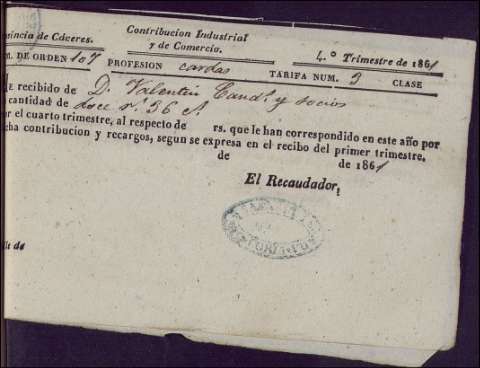 ovincia de Cáceres. Contribucion Industrial y de Comercio. 4.º Trimestre de 1861
M. DE ORDEN 107 PROFESION cardas TARIFA NUM. 3 CLASE
e recibido de D. Valentin Cand.º y socios
cantidad de doce r.s 36 c.s
or el cuarto trimestre, al respecto de rs. que le han correspondido en este año por
cha contribucion y recargos, segun se expresa en el recibo del primer trimestre.
de de 1861
El Recaudador,
de